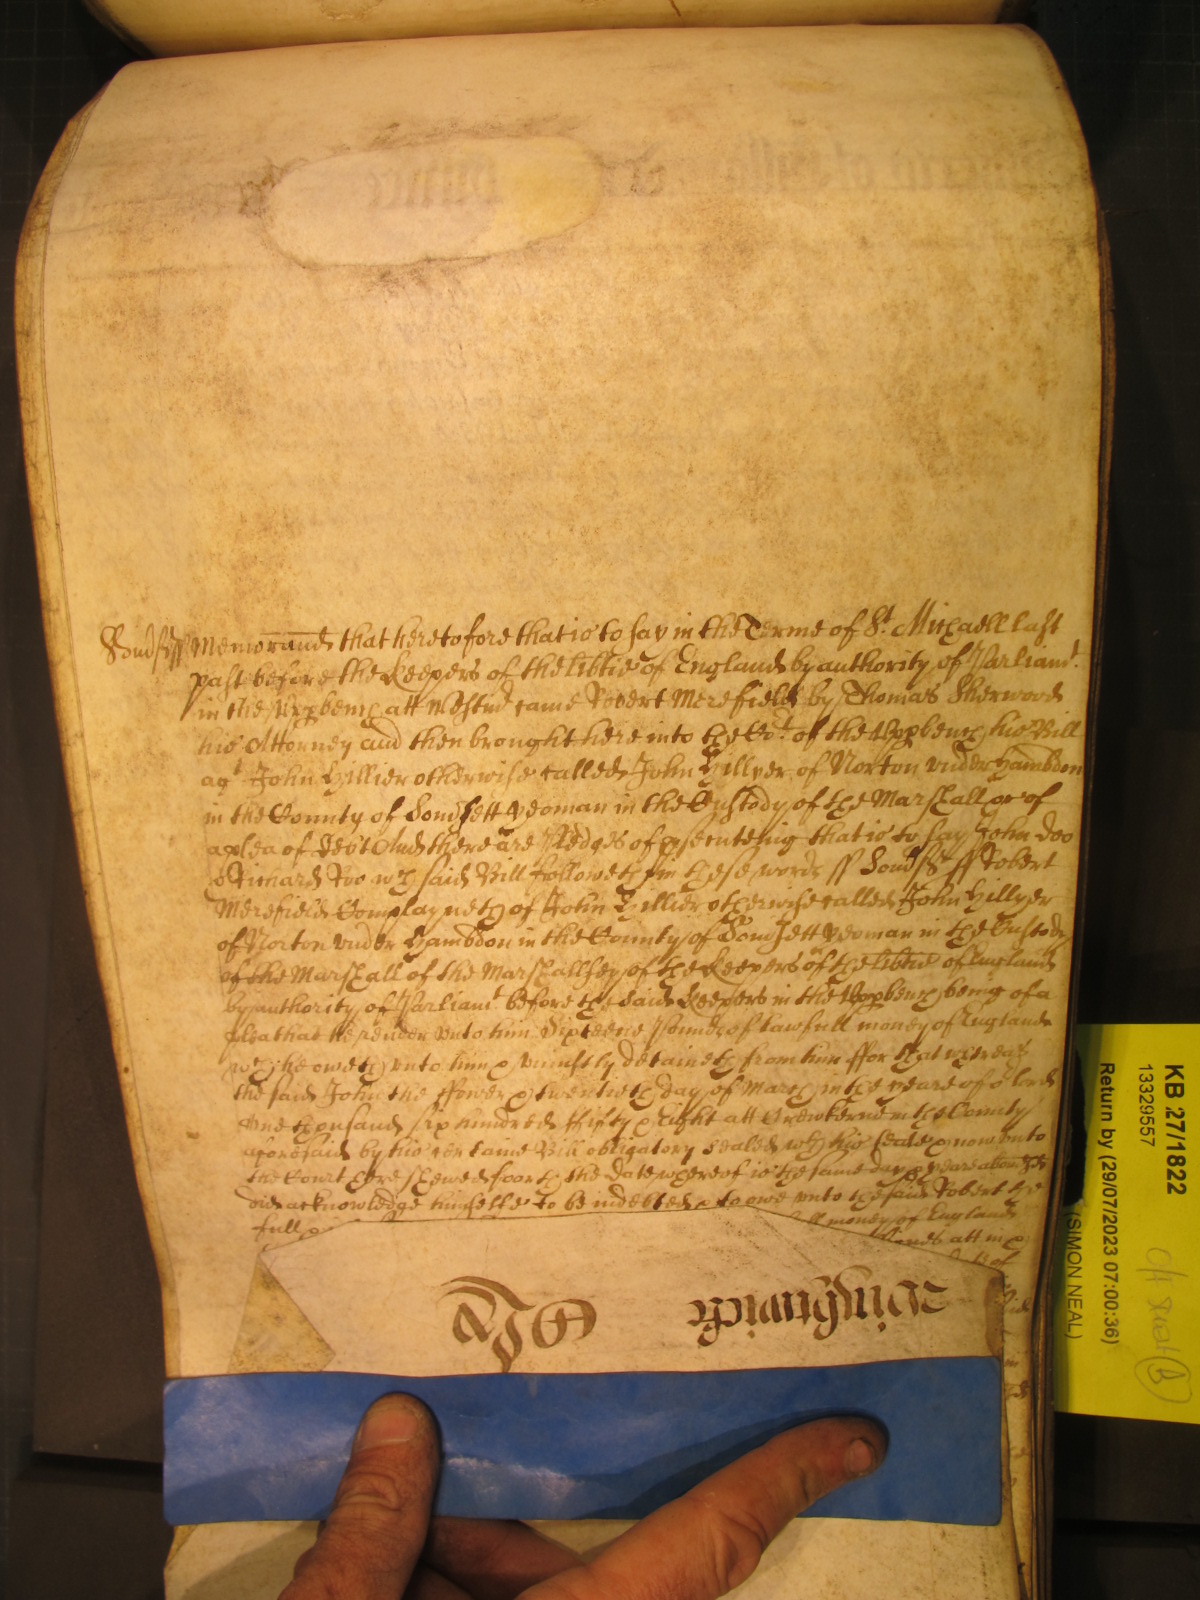 Somsett ss Memorand that heretofore that is to say in the Terme of St. Michaell last
past before the Keepers of the libtie of England by authority of Parliamt.
in the Vpp bench att Westmr came Robert Merefield by Thomas Sherwood
his Attorney and then brought here into the Cort of the Vpp bench his Bill
agt John Hillier otherwise called John Hillyer of Norton vnder Hambdon
in the County of Somssett yeoman in the Custody of the Marshall &c of
a plea of Debt And there are Pledges of psecuting that is to say John Doo
& Richard Roo wch said Bill followeth in these words ss Somsst ss Robert
Merefield Complayneth of John Hillier otherwise called John Hillyer
of Norton vnder Hambdon in the County of Somssett yeoman in the Custody
of the Marshall of the Marshallsey of the Keepers of the libtie of England
by authority of Parliamt before the said Keepers in the Vpp bench being of a
plea that he render vnto him Sixteene Pounds of lawfull money of England
wch he oweth vnto him & vniustly detaineth from him ffor that whereas
the said John the ffower & twentieth day of March in the yeare of or lord
One thousand six hundred fifty & eight att Crewkerne in the County
aforesaid by his certaine Bill obligatory sealed wth his seale & now into
the Court here shewed foorth the date whereof is the same day & yeare abovesd
did acknowledge himselfe to be indebted & to owe vnto the said Robert the
full money of England
att
of
Wightwick
KB 27/1822
13329557
Return by (29/07/2023 07:00:36)
(SIMON NEAL)